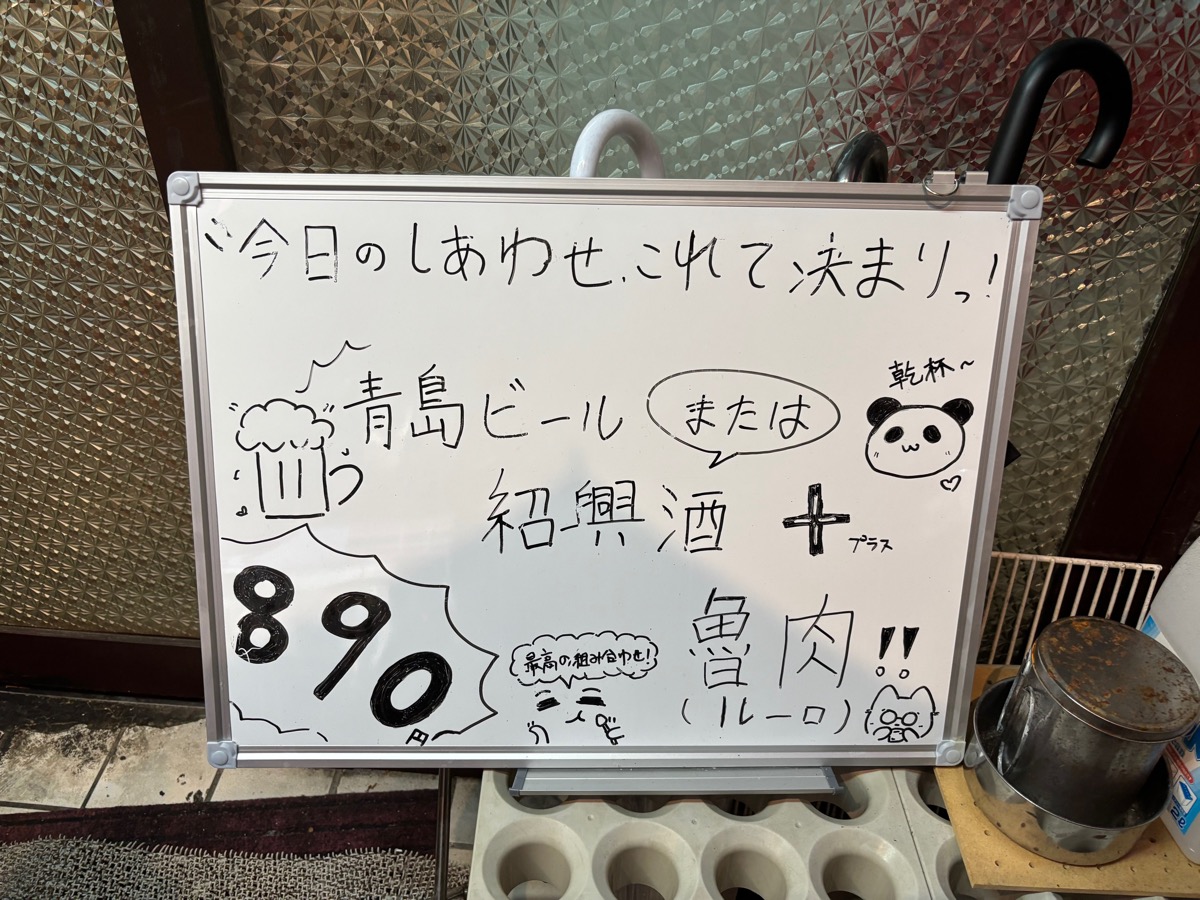 今日のしあわせ、これで決まりっ!
乾杯~
青島ビール または
紹興酒 + プラス
890円
最高の組み合わせ!
魯肉!!
(ルーロ)